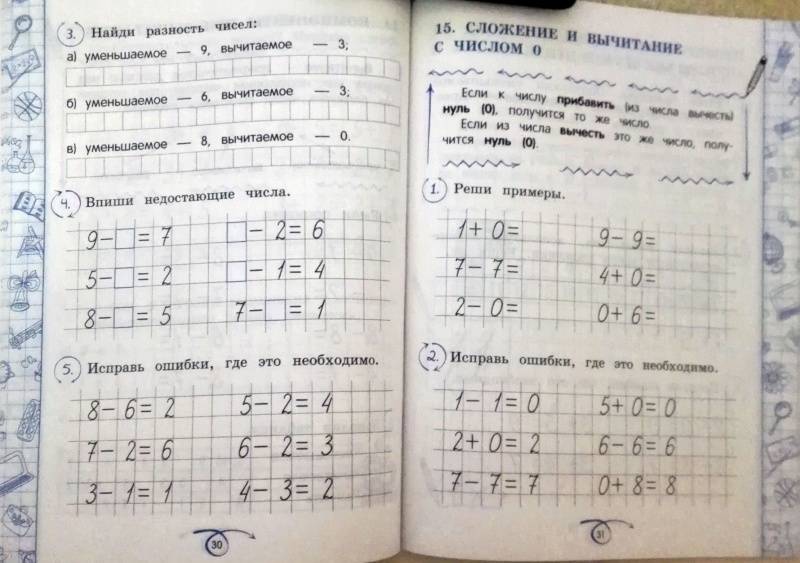 3. Найди разность чисел:
а) уменьшаемое — 9, вычитаемое — 3;
б) уменьшаемое — 6, вычитаемое — 3;
в) уменьшаемое — 8, вычитаемое — 0.
4. Впиши недостающие числа.
9–□= 7 □– 2= 6
5–□= 2 □– 1= 4
8–□= 5 7–□= 1
5. Исправь ошибки, где это необходимо.
8– 6= 2 5– 2= 4
7– 2= 6 6– 2= 3
3– 1= 1 4– 3= 2
30
15. СЛОЖЕНИЕ И ВЫЧИТАНИЕ
С ЧИСЛОМ 0
Если к числу прибавить (из числа вычесть)
нуль (0), получится то же число.
Если из числа вычесть это же число, полу-
чится нуль (0).
1. Реши примеры.
1+ 0= 9– 9=
7– 7= 4+ 0=
2– 0= 0+ 6=
2. Исправь ошибки, где это необходимо.
1– 1= 0 5+ 0= 0
2+ 0= 2 6– 6= 6
7– 7= 7 0+ 8= 8
31